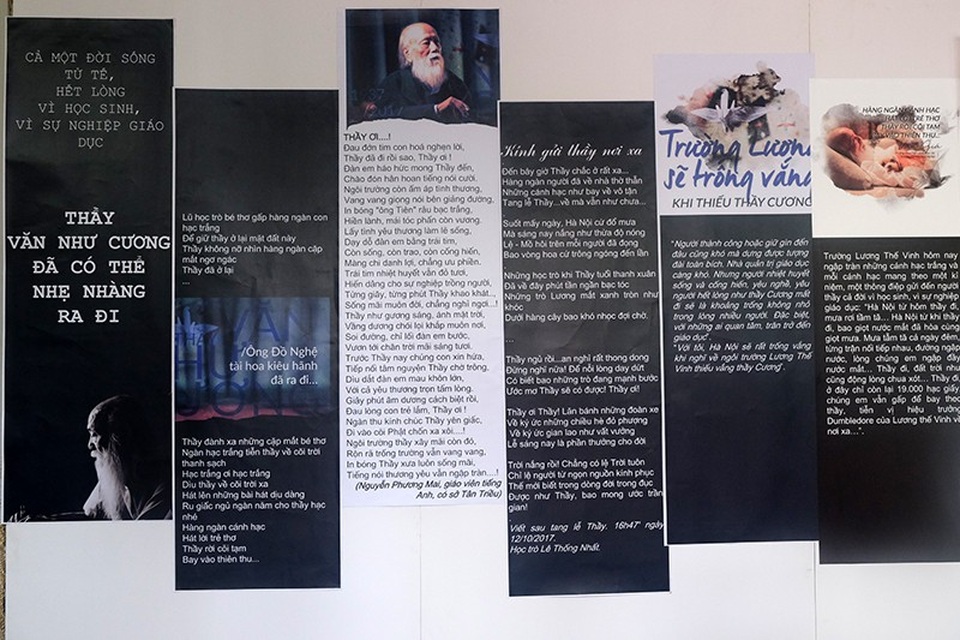 CẢ MỘT ĐỜI SỐNG
TỬ TẾ,
HẾT LÒNG
VÌ HỌC SINH,
VÌ SỰ NGHIỆP GIÁO
DỤC
THẦY
VĂN NHƯ CƯƠNG
ĐÃ CÓ THỂ
NHẸ NHÀNG
RA ĐI
Lũ học trò bé thơ gấp hàng ngàn con
hạc trắng
Để giữ thầy ở lại mặt đất này
Thầy không nỡ nhìn hàng ngàn cặp
mắt ngơ ngác
Thầy đã ở lại
...
/Ông Đồ Nghệ
tài hoa kiêu hãnh
đã ra đi...
Thầy đành xa những cặp mắt bé thơ
Ngàn hạc trắng tiễn thầy về cõi trời
thanh sạch
Hạc trắng ơi hạc trắng
Dìu thầy về cõi trời xa
Hát lên những bài hát dịu dàng
Ru giấc ngủ ngàn năm cho thầy hạc
nhé
Hàng ngàn cánh hạc
Hát lời trẻ thơ
Thầy rời cõi tạm
Bay vào thiên thu...
THẦY ƠI....!
Đau đớn tim con hoá nghẹn lời,
Thầy đã đi rồi sao, Thầy ơi !
Đàn em háo hức mong Thầy đến,
Chào đón hân hoan tiếng nói cười.
Ngôi trường còn ấm áp tình thương,
Vang vang giọng nói bên giảng đường,
In bóng "ông Tiên" râu bạc trắng,
Hiền lành, mái tóc phần còn vương.
Lấy tình yêu thương làm lẽ sống,
Dạy dỗ đàn em bằng trái tim,
Còn sống, còn trao, còn cống hiến,
Màng chi danh lợi, chẳng ưu phiền.
Trái tim nhiệt huyết vẫn đỏ tươi,
Hiến dâng cho sự nghiệp trồng người,
Từng giây, từng phút Thầy khao khát...
Sống mãi muôn đời, chẳng nghỉ ngơi...!
Thầy như gương sáng, ánh mặt trời,
Vầng dương chói lọi khắp muôn nơi,
Soi đường, chỉ lối đàn em bước,
Vươn tới chân trời mãi sáng tươi.
Trước Thầy nay chúng con xin hứa,
Tiếp nối tâm nguyện Thầy chờ trông,
Dìu dắt đàn em mau khôn lớn,
Với cả yêu thương trọn tấm lòng.
Giây phút âm dương cách biệt rồi,
Đau lòng con trẻ lắm, Thầy ơi !
Ngàn thu kính chúc Thầy yên giấc,
Đi vào cõi Phật chốn xa xôi....!
Ngôi trường thầy xây mãi còn đó,
Rộn rã trống trường vẫn vang vang,
In bóng Thầy xưa luôn sống mãi,
Tiếng nói thương yêu vẫn ngập tràn....!
(Nguyễn Phương Mai, giáo viên tiếng
Anh, có sở Tân Triều)
Kính gửi thầy nơi xa
Đến bây giờ Thầy chắc ở rất xa...
Hàng ngàn người đã về nhà thờ thẫn
Những cánh hạc như bay về vô tận
Tang lễ Thầy...về mà vẫn như chưa...
Suốt mấy ngày, Hà Nội cứ đổ mưa
Mà sáng nay nắng như thừa độ nóng
Lệ - Mồ hôi trên mỗi người đã đọng
Bao vòng hoa cứ trông ngóng đến lần
Những học trò khi Thầy tuổi thanh xuân
Đã về đây phút tần ngần bạc tóc
Những trò Lương mắt xanh tròn như
khóc
Dưới hàng cây bao khó nhọc đợi chờ.
...
Thầy ngủ rồi...an nghỉ rất thong dong
Đừng nghĩ nữa! Để nỗi lòng day dứt
Có biết bao những trò đang mạnh bước
Ước mơ Thầy sẽ có được! Thầy ơi!
Thầy ơi Thầy! Lăn bánh những đoàn xe
Về ký ức những chiều hè đỏ phượng
Về ký ức gian lao như vất vưởng
Lễ sáng nay là phần thưởng cho đời
Trời nắng rồi! Chẳng có lệ Trời tuôn
Chỉ lệ người từ ngọn nguồn kính phục
Thế mới biết trong dòng đời trong đục
Được như Thầy, bao mong ước trần
gian!
Viết sau tang lễ Thầy. 16h47' ngày
12/10/2017.
Học trò Lê Thống Nhất.
Trường Lương
sẽ trống vắng
KHI THIẾU THẦY CƯƠNG
"Người thành công hoặc giữ gìn đến
đâu cũng khó mà dựng được tượng
đài toàn bích. Nhà quản trị giáo dục
càng khó. Nhưng người nhiệt huyết
sống và cống hiến, yêu nghề, yêu
người hết lòng như thầy Cương mất
đi sẽ là khoảng trống không nhỏ
trong lòng nhiều người. Đặc biệt,
với những ai quan tâm, trăn trở đến
giáo dục".
"Với tôi. Hà Nội sẽ rất trống vắng
khi nghĩ về ngôi trường Lương Thế
Vinh thiếu vắng thầy Cương".
HÀNG NGÀN CÁNH HẠC
HÁT LỜI TRẺ THƠ
THẦY RỜI CÕI TẠM
BAY VÀO THIÊN THU...
Trường Lương Thế Vinh hôm nay
ngập tràn những cánh hạc trắng và
mỗi cánh hạc mang theo một kỉ
niệm, một thông điệp gửi đến người
thầy cả đời vì học sinh, vì sự nghiệp
giáo dục: "Hà Nội từ hôm thầy đi,
mưa rơi tầm tã... Hà Nội từ khi thầy
đi, bao giọt nước mắt đã hòa cùng
giọt mưa. Mưa tầm tã cả ngày đêm,
từng trận nối tiếp nhau, đường ngập
nước, lòng chúng em ngập đầy
nước mắt... Thầy đi, đất trời như
cũng động lòng chua xót... Thầy đi,
ở đây chỉ còn lại 19.000 hạc giấy
chúng em vẫn gấp để bay theo
thầy, tiễn vị hiệu trưởng
Dumbledore của Lương thế Vinh về
nơi xa...".